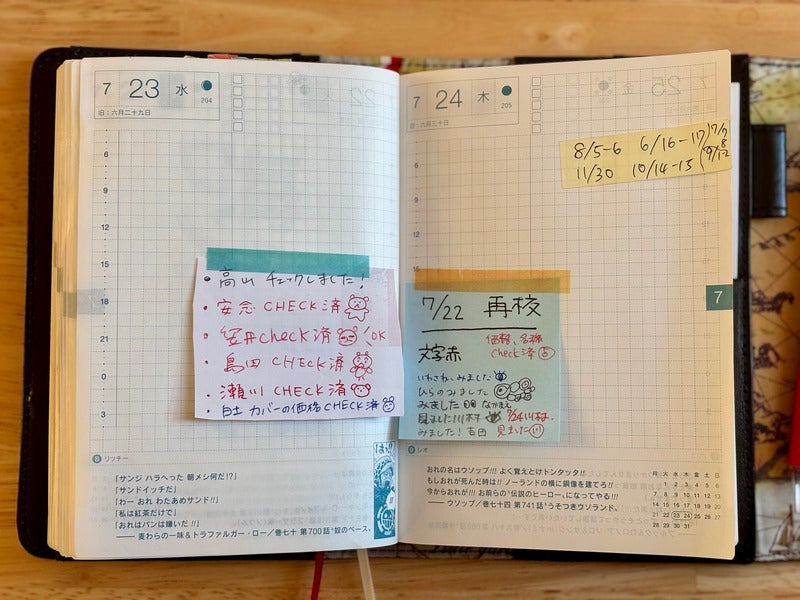 7 23 水 204
旧:六月二十九日
6
9
12
15
18
21
0
3
・高山 チェックしました!
・安念 CHECK 済
・笠井check済 OK
・島田 CHECK 済
・瀬川 CHECK 済
・白土 カバーの価格CHECK 済
B リッチー
「サンジ ハラへった 朝メシ何だ!?」
「サンドイッチだ」
「わー おれ わたあめサンド!!」
「私は紅茶だけで」
「おれはパンは嫌いだ!!」
—— 麦わらの一味&トラファルガー・ロー/巻七十 第700話“奴のペース„
7 24 木 205
旧:六月三十日
8/5-6 6/16-17
11/30 10/14-15
6
9
12
7
7/22 再校
文字赤
価格、名称
Check済
いわさわ、みました
ひらのみました
みました
見ました川村
みました! 吉田
見ました
B レオ
おれの名はウソップ!!! よく覚えとけトンタッタ!!
もしおれが死んだ時は!! ノーランドの横に銅像を建てろ!!
今からおれが!!! お前らの“伝説のヒーロー„になってやる!!!
—— ウソップ/巻七十四 第741話“うそつきウソランド„
月 火 水 木 金 土 日
1 2 3 4 5 6
7 8 9 10 11 12 13
14 15 16 17 18 19 20
21 22 23 24 25 26 27
28 29 30 31